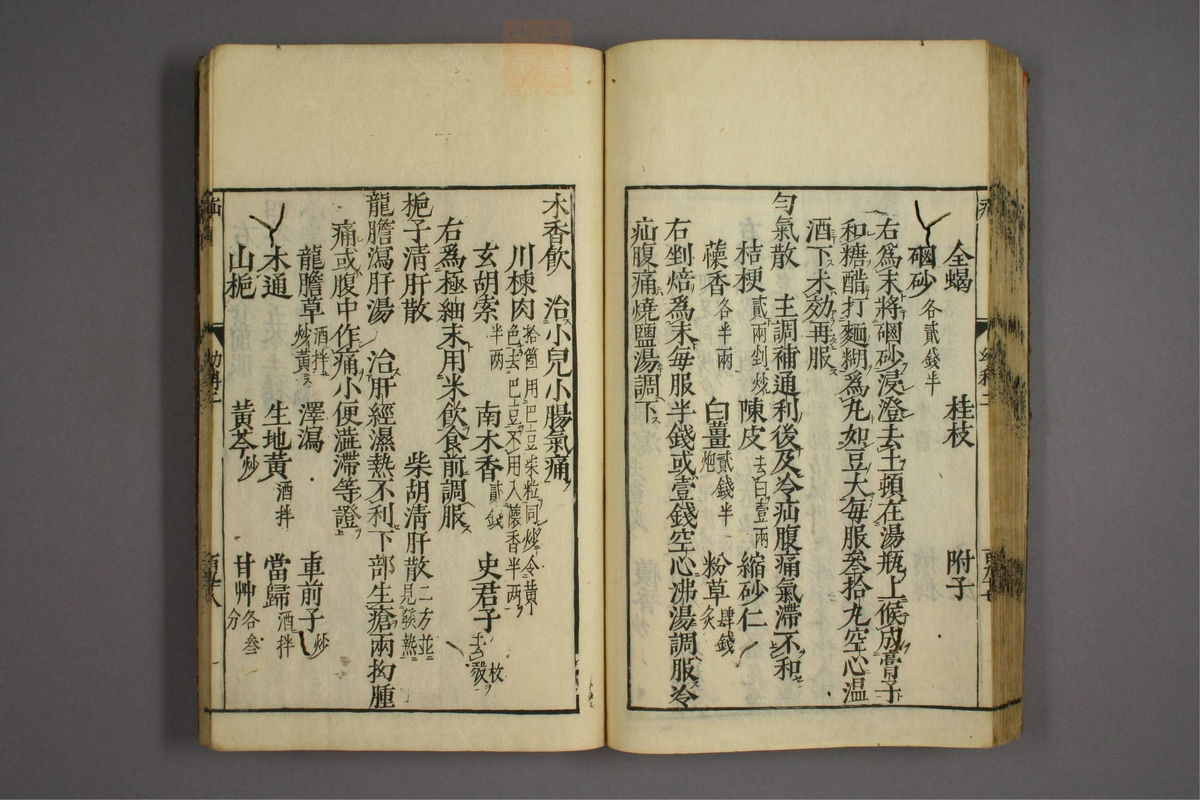 全蝎 桂枝 附子
磠砂各貳錢半
右爲末將磠砂浸澄去土頓在湯瓶上候成膏子
和糖醋打麵糊爲丸如豆大每服叄拾丸空心温
酒下未効再服
勻氣散 主調補通利後及冷疝腹痛氣滯不和
桔梗貳兩剉炒 陳皮去白壹兩 縮砂仁
藱香各半兩 白薑貳錢半炮 粉草肆錢炙
右剉焙爲末每服半錢或壹錢空心沸湯調服冷
疝腹痛燒鹽湯調下
木香飲 治小兒小腸氣痛
川楝肉拾箇用巴豆柒粒同炒令黃色去巴豆不用入蘹香半兩
玄胡索半兩 南木香貳錢 史君子去殼枚
右爲極細末用米飲食前調服
梔子清肝散 柴胡清肝散二方並見發熱
龍膽瀉肝湯 治肝經濕熱不利下部生瘡兩拗腫
痛或腹中作痛小便澁滯等證
龍膽草酒拌炒黃 澤瀉 車前子炒
木通 生地黃酒拌 當歸酒拌
山梔 黃芩炒 甘艸各叁分